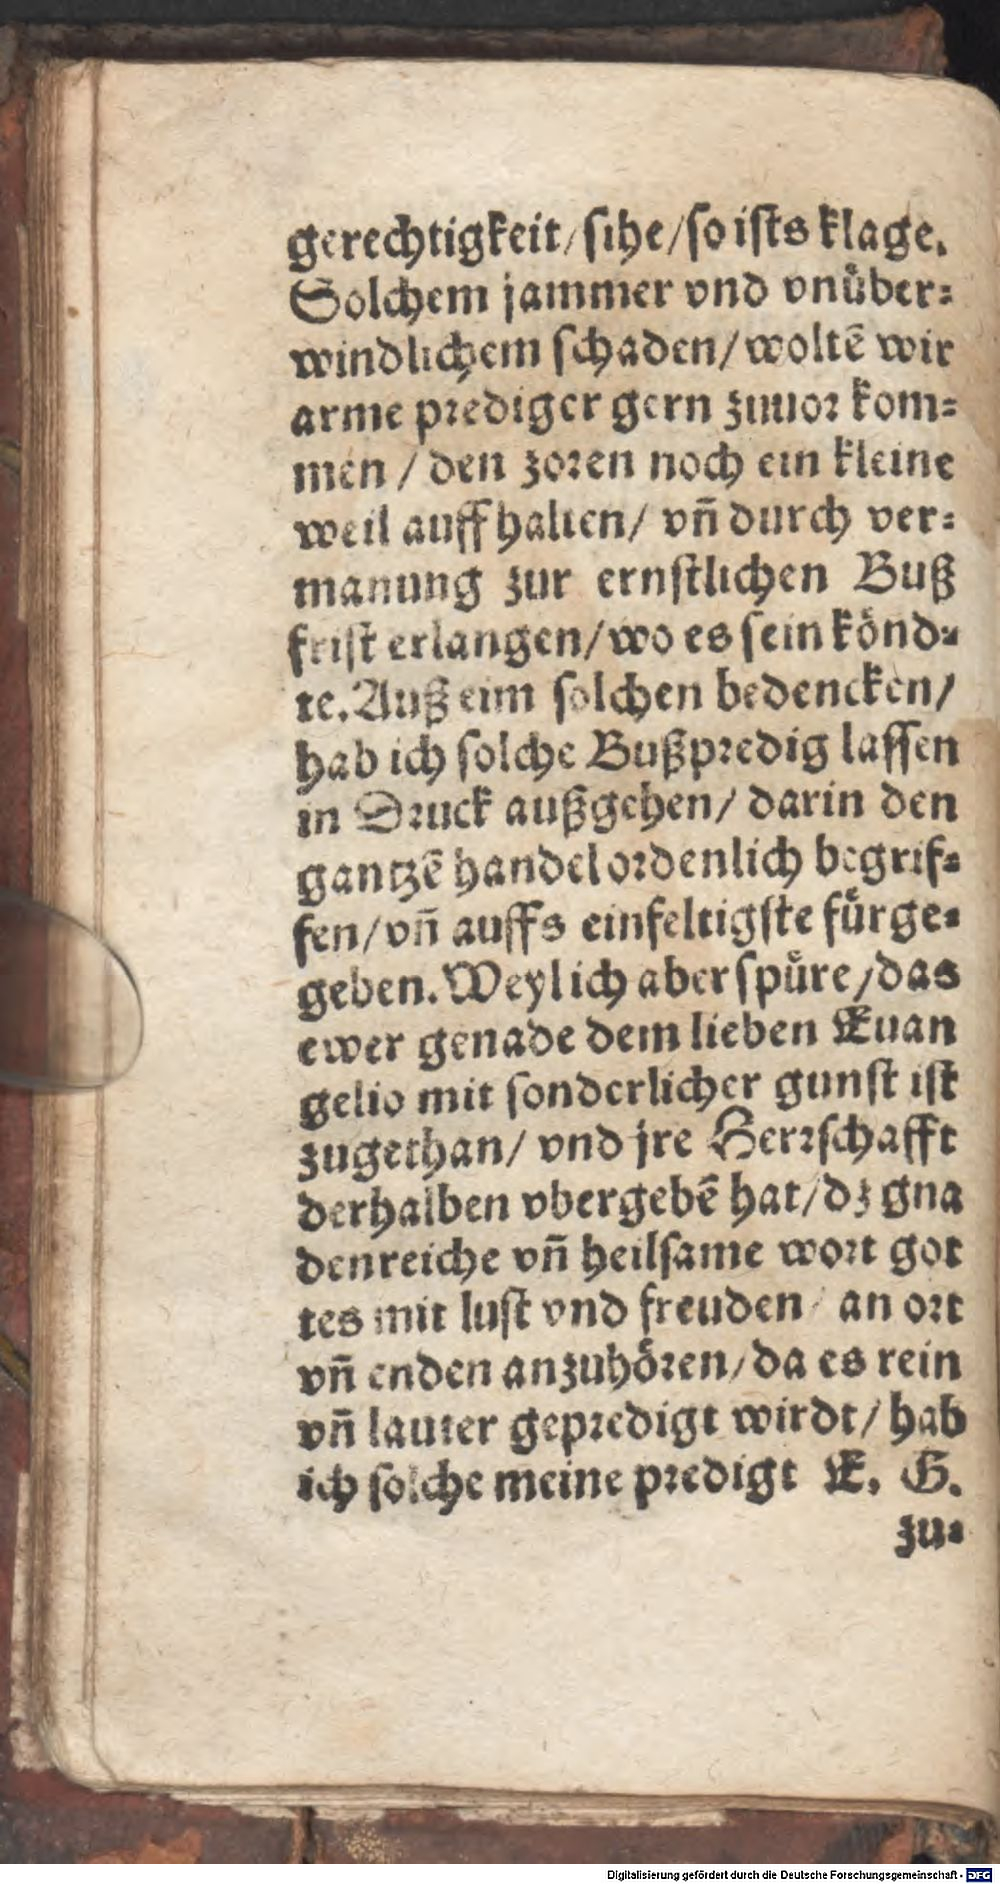 gerechtigkeit/ sihe/ so ists klage.
Solchem jammer vnd vnüber⸗
windlichem schaden/ woltē wir
arme prediger gern zuuor kom⸗
men / den zoren noch ein kleine
weil auff halten/ vn̄ durch ver⸗
manung zur ernstlichen Buß
frist erlangen/ wo es sein könd⸗
te. Auß eim solchen bedencken/
hab ich solche Bußpredig lassen
in Druck außgehen/ darin den
gantzē handel ordenlich begrif⸗
fen/ vn̄ auffs einfeltigste fürge⸗
geben. Weyl ich aber spüre/ das
ewer genade dem lieben Euan
gelio mit sonderlicher gunst ist
zugethan/ vnd jre Herrschafft
derhalben vbergebē hat/ dz gna
denreiche vn̄ heilsame wort got
tes mit lust vnd freuden/ an ort
vn̄ enden anzuhören/ da es rein
vn̄ lauter gepredigt wirdt/ hab
ich solche meine predigt E. G.
zu⸗
Digitalisierung gefördert durch die Deutsche Forschungsgemeinschaft - DFG